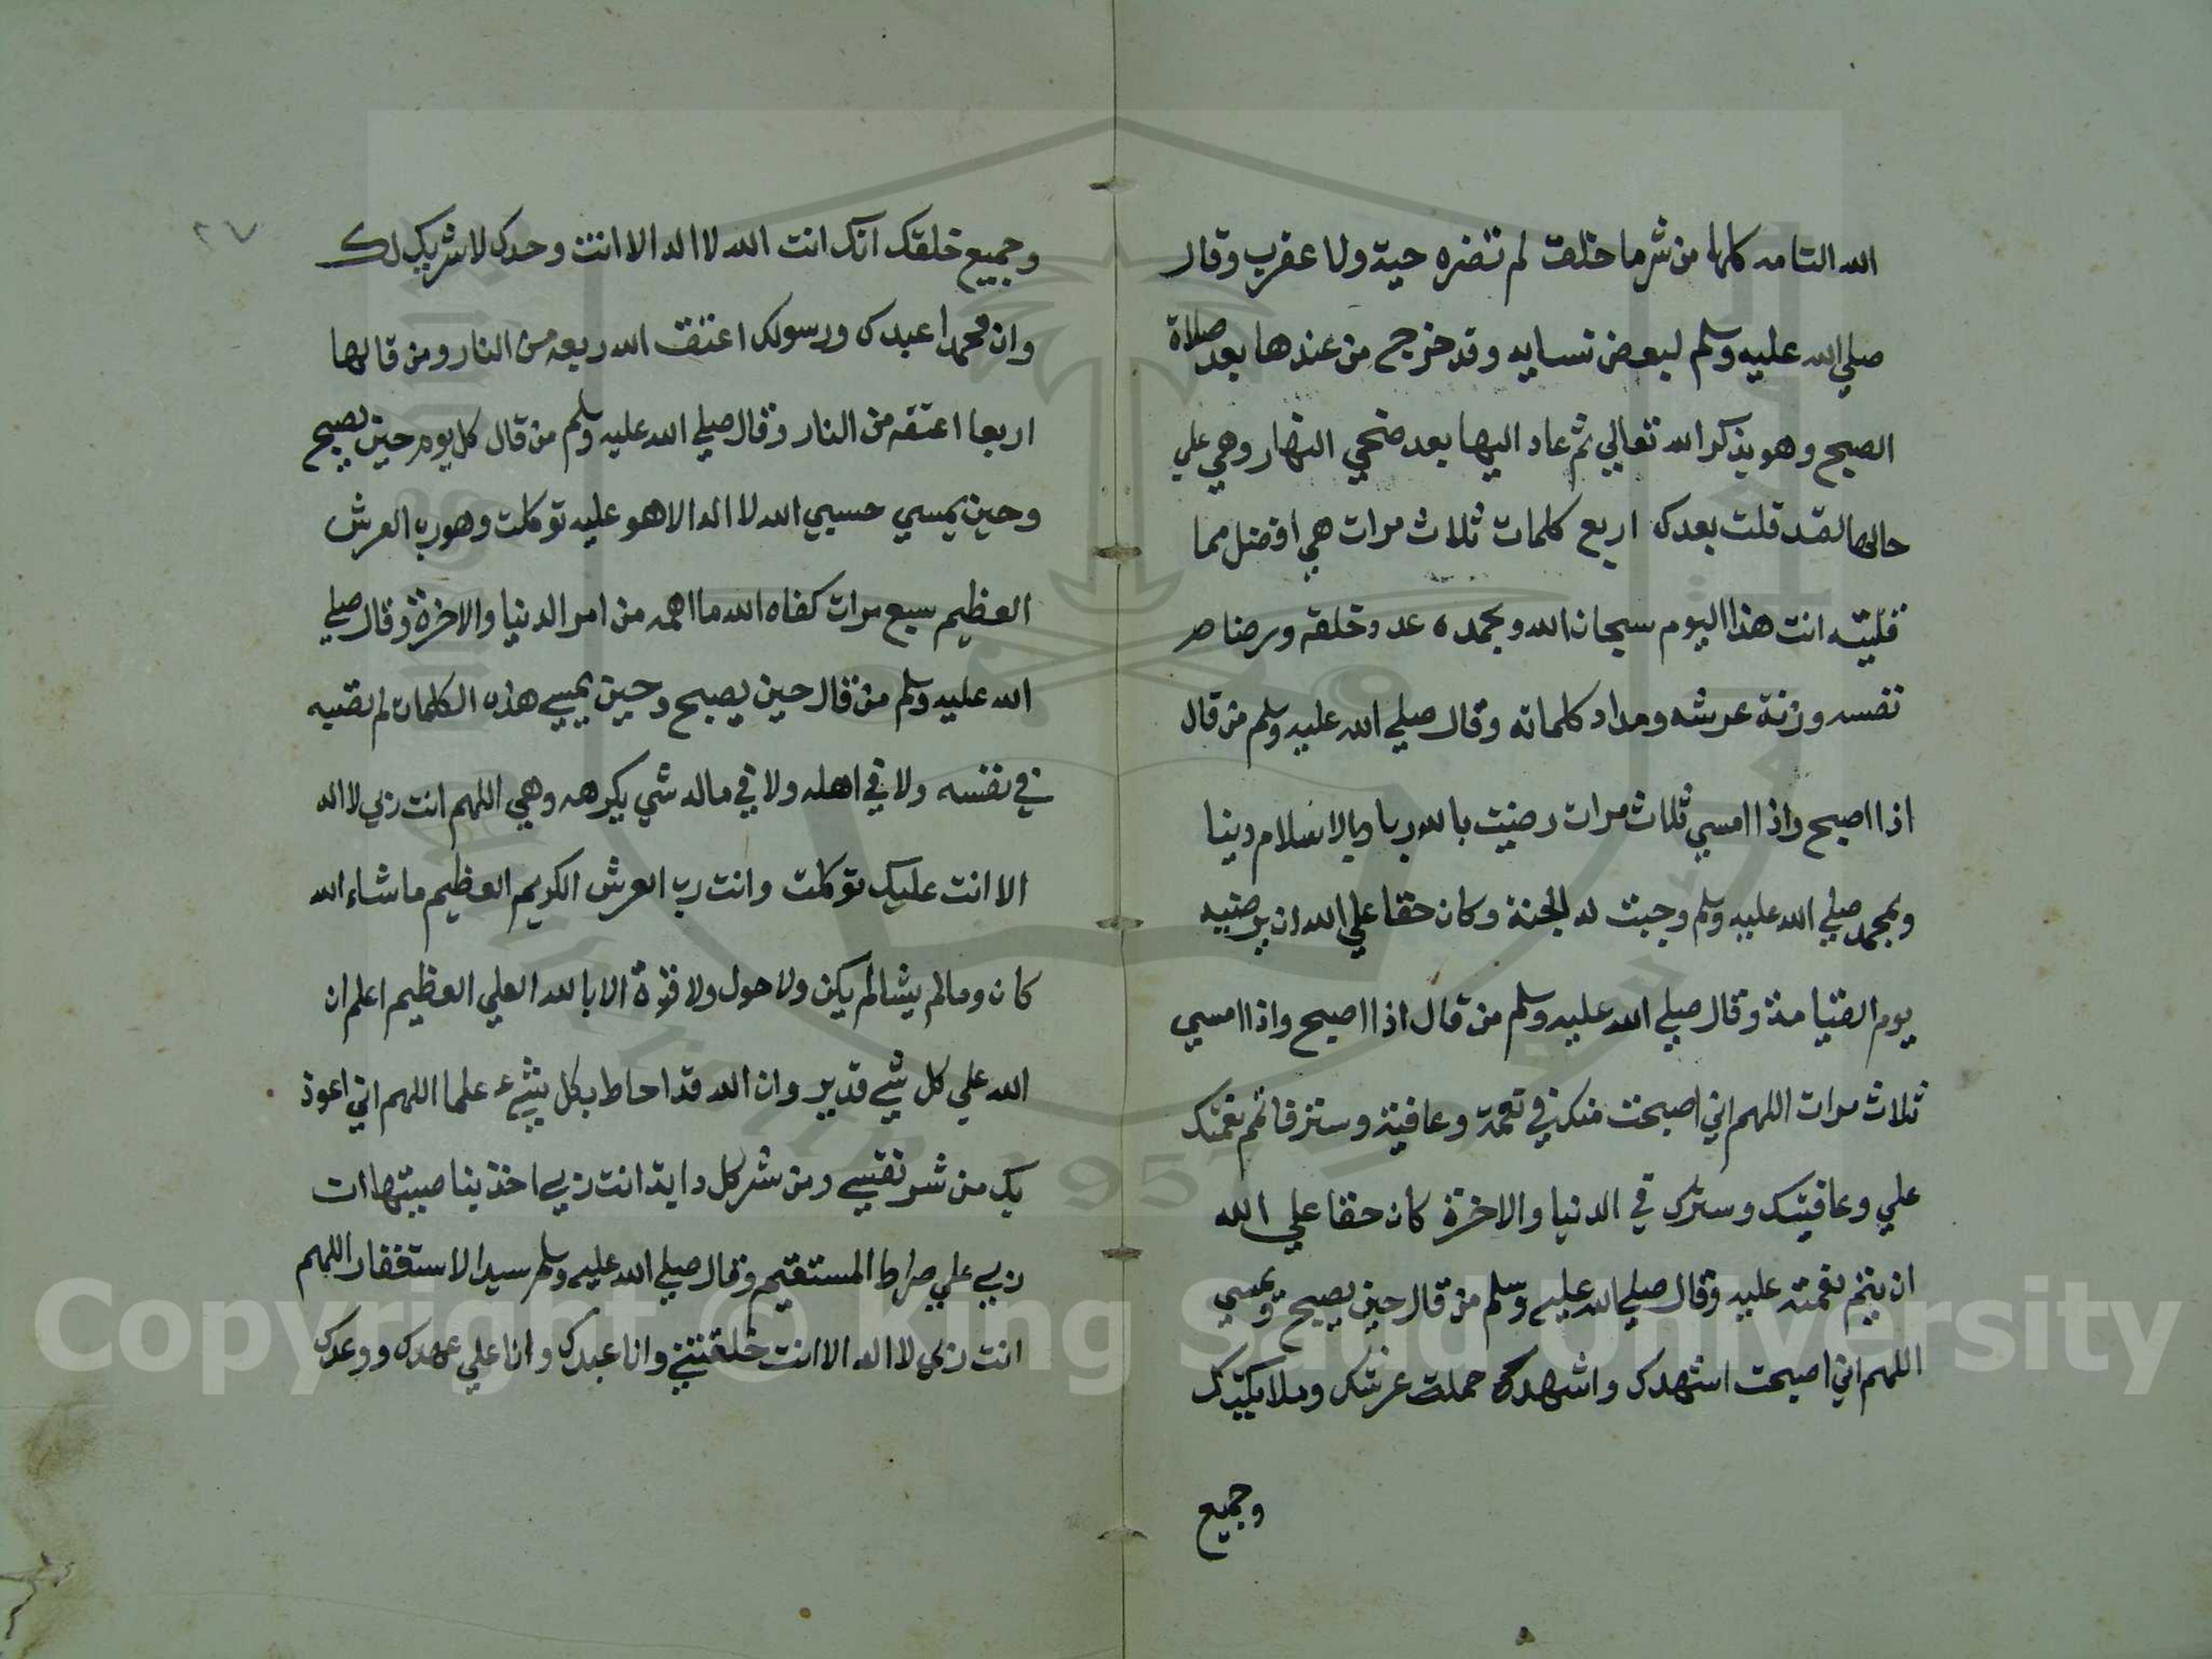 الله التامه كلها من شر ما خلق لم تضره حية ولا عقرب وقال
صلي الله عليه وسلم لبعض نسايه وقد خرج من عندها بعد صلاة
الصبح وهو يذكر الله تعالي ثم عاد اليها بعد ضحي النهار وهي علي
حالها لقد قلت بعدك اربع كلمات ثلاث مرات هي افضل مما
قلتيه انت هذا اليوم سبحان الله وبحمده عدد خلقه ورضا
نفسه وزنة عرشه ومداد كلماته وقال صلي الله عليه وسلم من قال
اذا اصبح واذا امسي ثلاث مرات رضيت بالله ربا وبالاسلام دينا
وبمحمد صلي الله عليه وسلم وجبت له الجنة وكان حقا علي الله ان يرضيه
يوم القيامة وقال صلي الله عليه وسلم من قال اذا اصبح واذا امسي
ثلاث مرات اللهم اني اصبحت منك في نعمة وعافية وستر فاتم نعمتك
علي وعافيتك وسترك في الدنيا والاخرة كان حقا علي الله
ان يتم نعمته عليه وقال صلي الله عليه وسلم من قال حين يصبح ويمسي
اللهم اني اصبحت اشهدك واشهدك حملت عرشك وملايكتك
وجميع
٢٧
وجميع خلقك انك انت الله لا اله الا انت وحدك لا شريك لك
وان محمدا عبدك ورسولك اعتق الله ربعه من النار ومن قالها
اربعا اعتقه من النار وقال صلي الله عليه وسلم من قال كل يوم حين يصبح
وحين يمسي حسبي الله لا اله الا هو عليه توكلت وهو رب العرش
العظيم سبع مرات كفاه الله ما اهمه من امر الدنيا والاخرة وقال صلي
الله عليه وسلم من قال حين يصبح وحين يمسي هذه الكلمات لم تصبه
في نفسه ولا في اهله ولا في ماله شي يكرهه وهي اللهم انت ربي لا اله
الا انت عليك توكلت وانت رب العرش الكريم العظيم ماشاء الله
كان وما لم يشا لم يكن ولا حول ولا قوة الا بالله العلي العظيم اعلم ان
الله علي كل شي قدير وان الله قد احاط بكل شيء علما اللهم اني اعوذ
بك من شر نفسي ومن شر كل دابة انت ربي اخذ بناصيتها ان
ربي علي صراط المستقيم وقال صلي الله عليه وسلم سيد الاستغفار اللهم
انت ربي لا اله الا انت خلقتني وانا عبدك وانا علي عهدك ووعدك
Copyright © King Saud University
1957